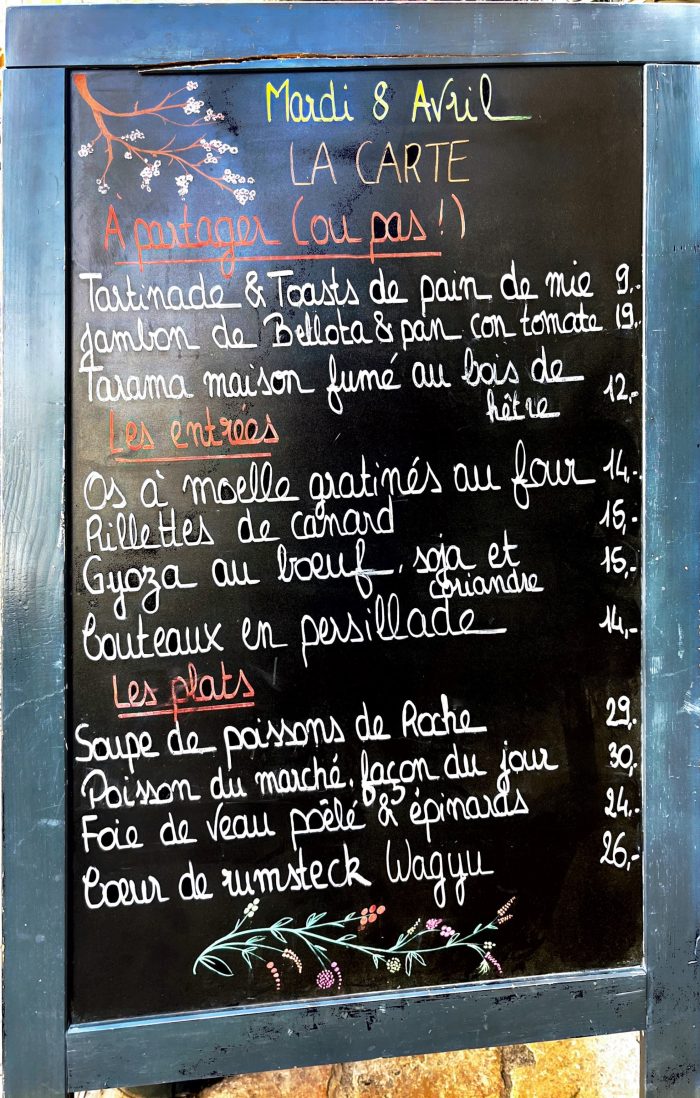 Mardi 8 Avril
LA CARTE
À partager (ou pas !)
Tartinade & Toasts de pain de mie 9,-
Jambon de Bellota & pan con tomate 19,-
Tarama maison fumé au bois de
hêtre 12,-
Les entrées
Os à moelle gratinés au four 14,-
Rillettes de canard 15,-
Gyoza au bœuf, soja et 15,-
coriandre
Couteaux en persillade 14,-
Les plats
Soupe de poissons de Roche 29,-
Poisson du marché, façon du jour 30,-
Foie de veau poêlé & épinards 24,-
Cœur de rumsteck Wagyu 26,-